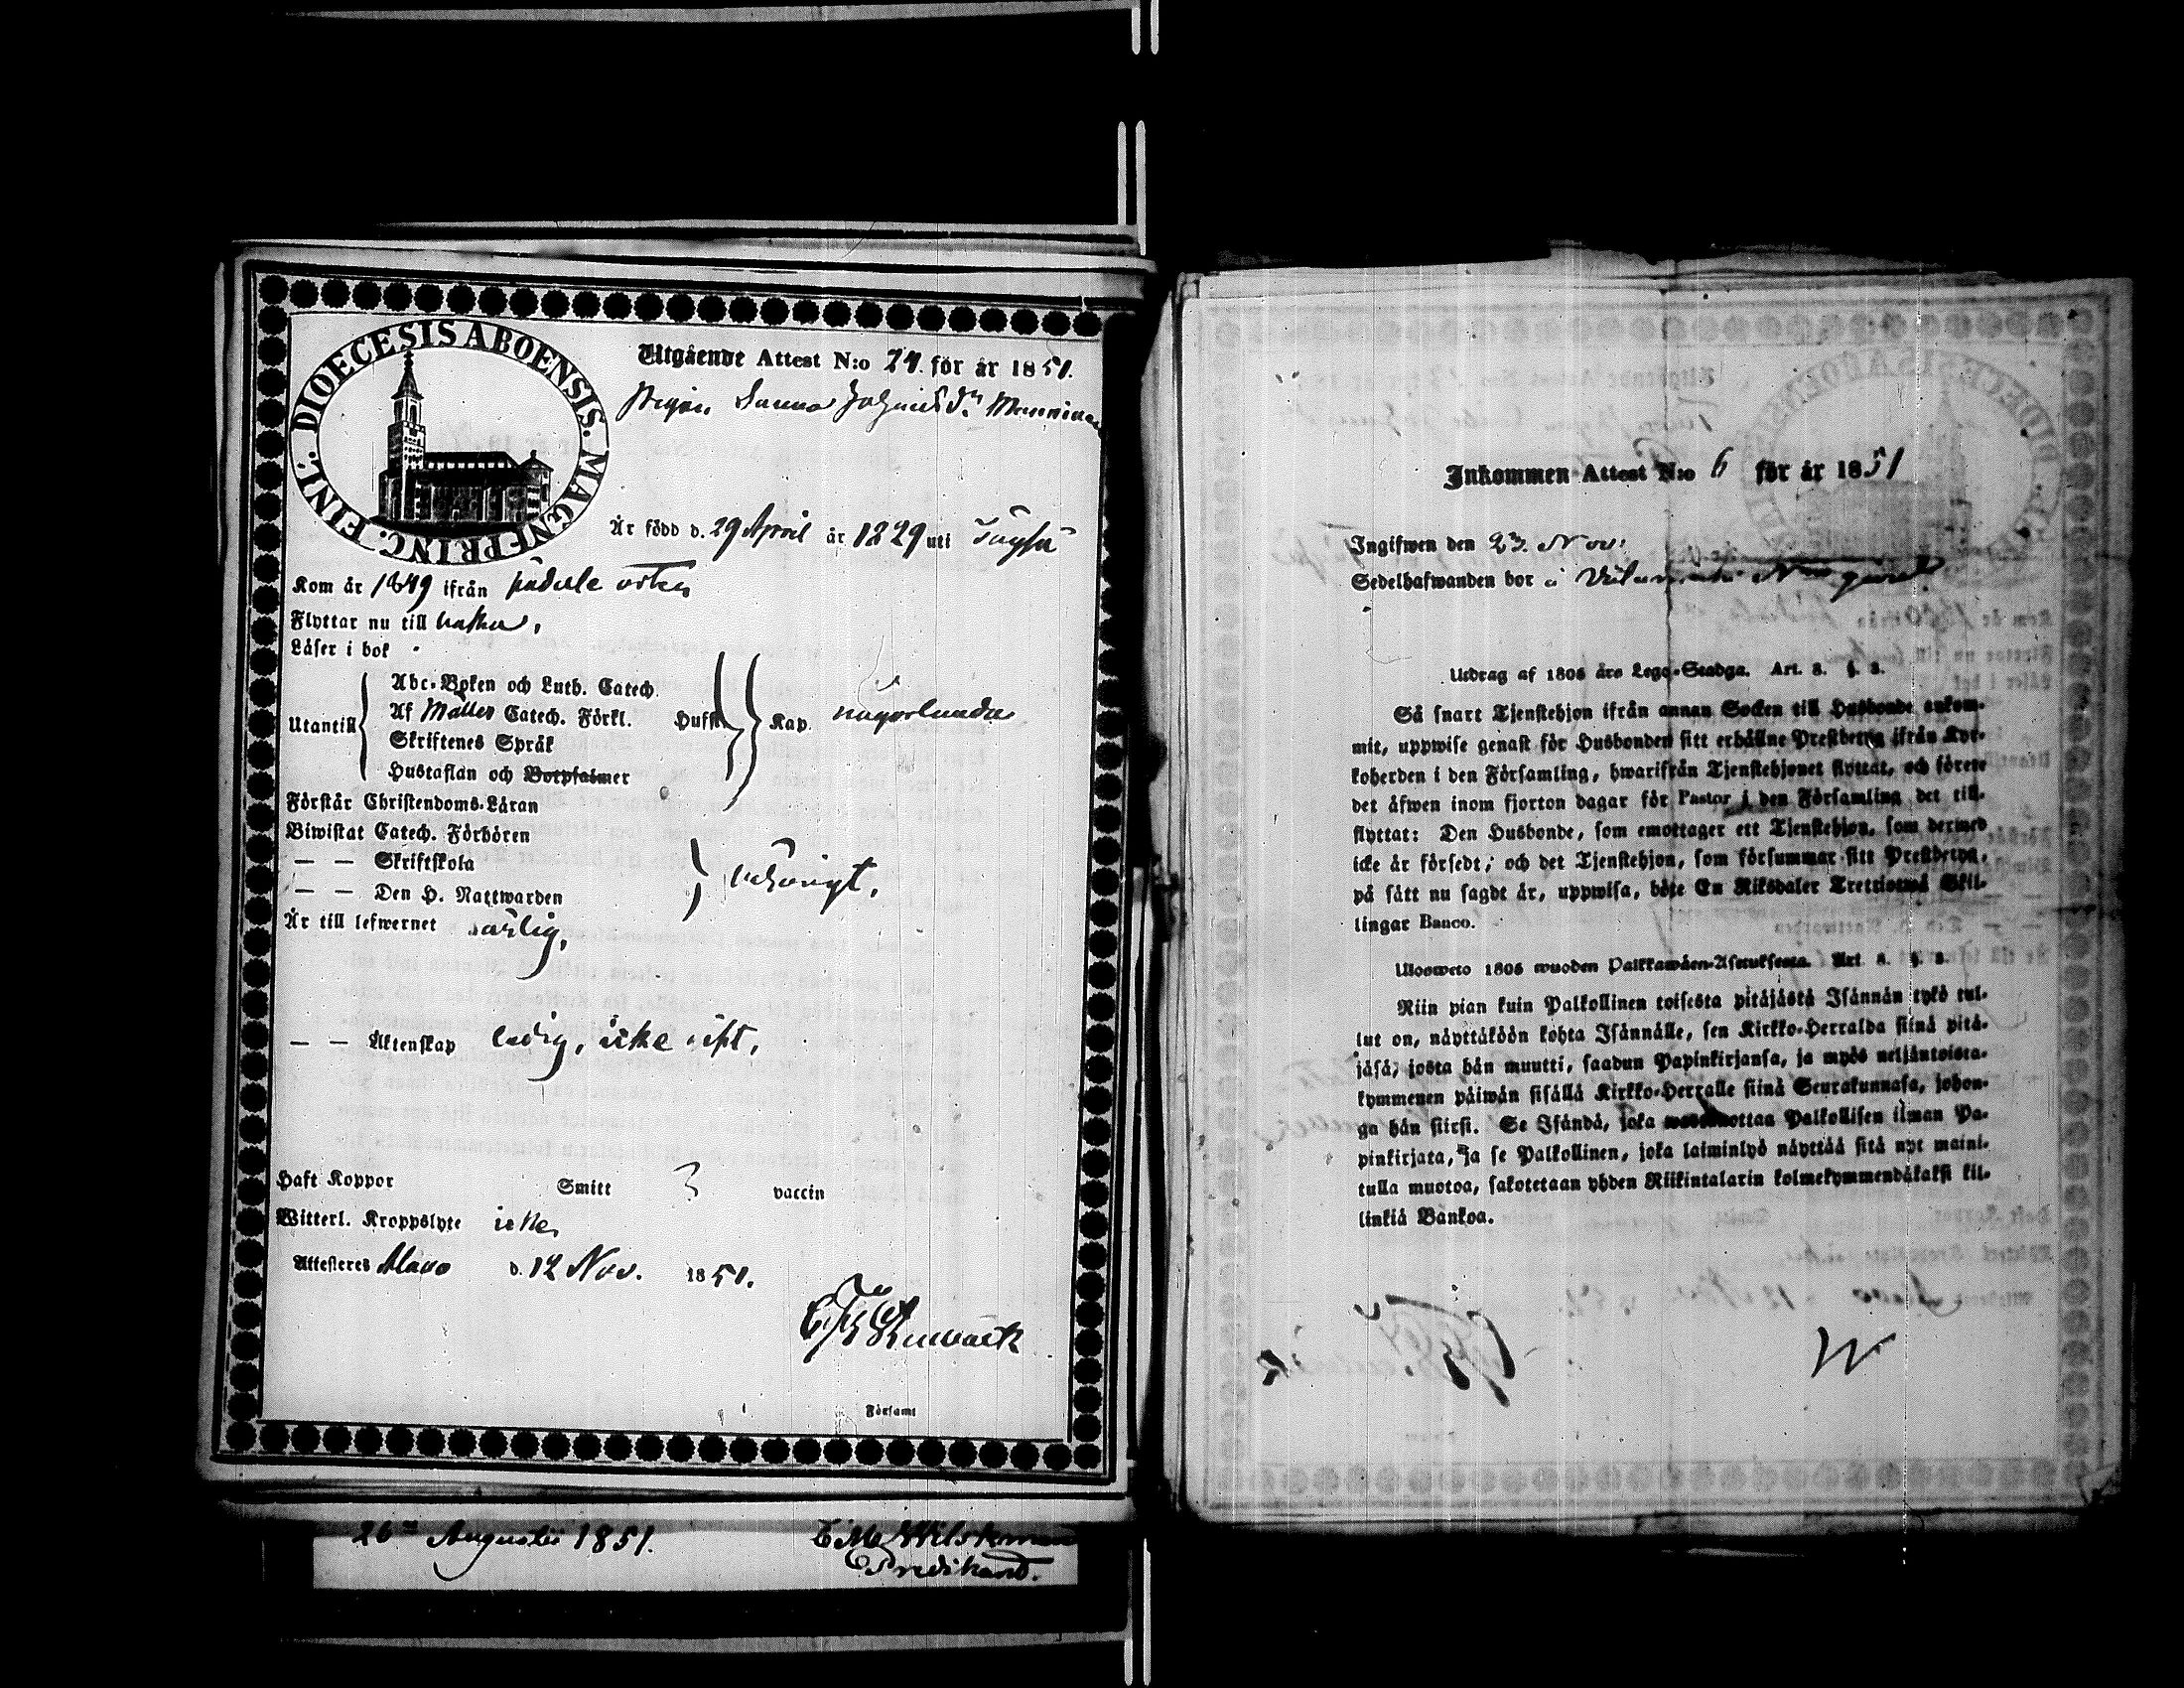 DIOECESIS ABOENSIS. MAGNI PRINC. FINL.
Utgående Attest N:o 74. för år 1851.
Pigan Sanna Johansdr Manninen
Är född d. 29 April år 1829 uti Töysä
Kom år 1849 ifrån sådule orten
Flyttar nu till
Läser i bok
Utantill
Abc-Boken och Luth. Catech.
Af Möllers Catech. Förkl. Hufst. Kap. någorlunda
Skriftenes Språk
Hustaflan och Botpsalmer
Förstår Christendoms-Läran
Biwistat Catech. Förhören
— — Skriftskola
— — Den H. Nattwarden behörigt.
Är till lefwernet ärlig,
— — Äktenskap ledig, icke gift,
Haft Koppor Smitt vaccin
Witterl. Kroppslyte icke
Attesteres Alavo d. 12 Nov. 1851.
Församl
26 Augusti 1851.
Predikand.
Inkommen Attest N:o 6 för år 1851
Ingifwen den 23. Nov:
Sedelhafwanden bor i
Utdrag af 1805 års Lego-Stadga. Art. 8. §. 8.
Så snart Tjenstehjon ifrån annan Socken till Husbonde ankom-
mit, uppwise genast för Husbonden sitt erhållne Prestbetyg ifrån Kyr-
koherden i den Församling, hwarifrån Tjenstehjonet flyttat, och förete
det äfwen inom fjorton dagar för Pastor i den Församling det till-
flyttat: Den Husbonde, som emottager ett Tjenstehjon, som dermed
icke är försedt, och det Tjenstehjon, som försummar sitt Prestbetyg,
på sätt nu sagdt är, uppwisa, böte En Riksdaler Trettiotwå Skil-
lingar Banco.
Ulosweto 1805 wuoden Palkkawäen-Asetuksesta. Art. 8. §. 8.
Niin pian kuin Palkollinen toisesta pitäjästä Isännän tykö tul-
lut on, näyttäköön kohta Isännälle, sen Kirkko-Herralda siinä pitä-
jäsä, josta hän muutti, saadun Papinkirjansa, ja myös neljäntoista-
kymmenen päiwän sisällä Kirkko-Herralle siinä Seurakunnasa, johon-
ga hän siirsi. Se Isändä, joka wastaanottaa Palkollisen ilman Pa-
pinkirjata, ja se Palkollinen, joka laiminlyö näyttää sitä nyt maini-
tulla muotoa, sakotetaan yhden Riikintalarin kolmekymmendäkaksi kil-
linkiä Bankoa.